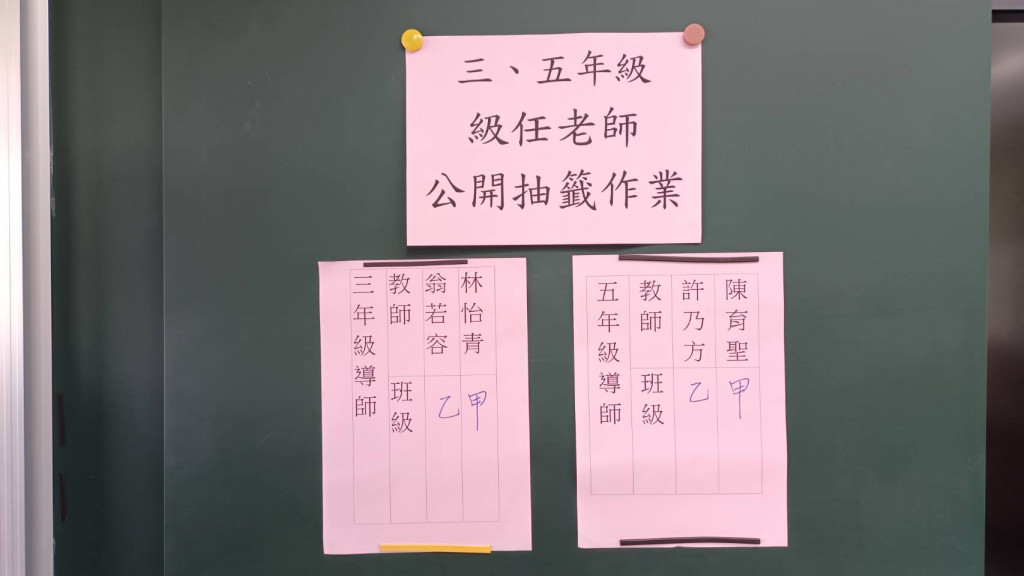 三、五年級
級任老師
公開抽籤作業
三年級導師
教師 班級
翁若容 乙
林怡青 甲
五年級導師
教師 班級
許乃方 乙
陳育聖 甲